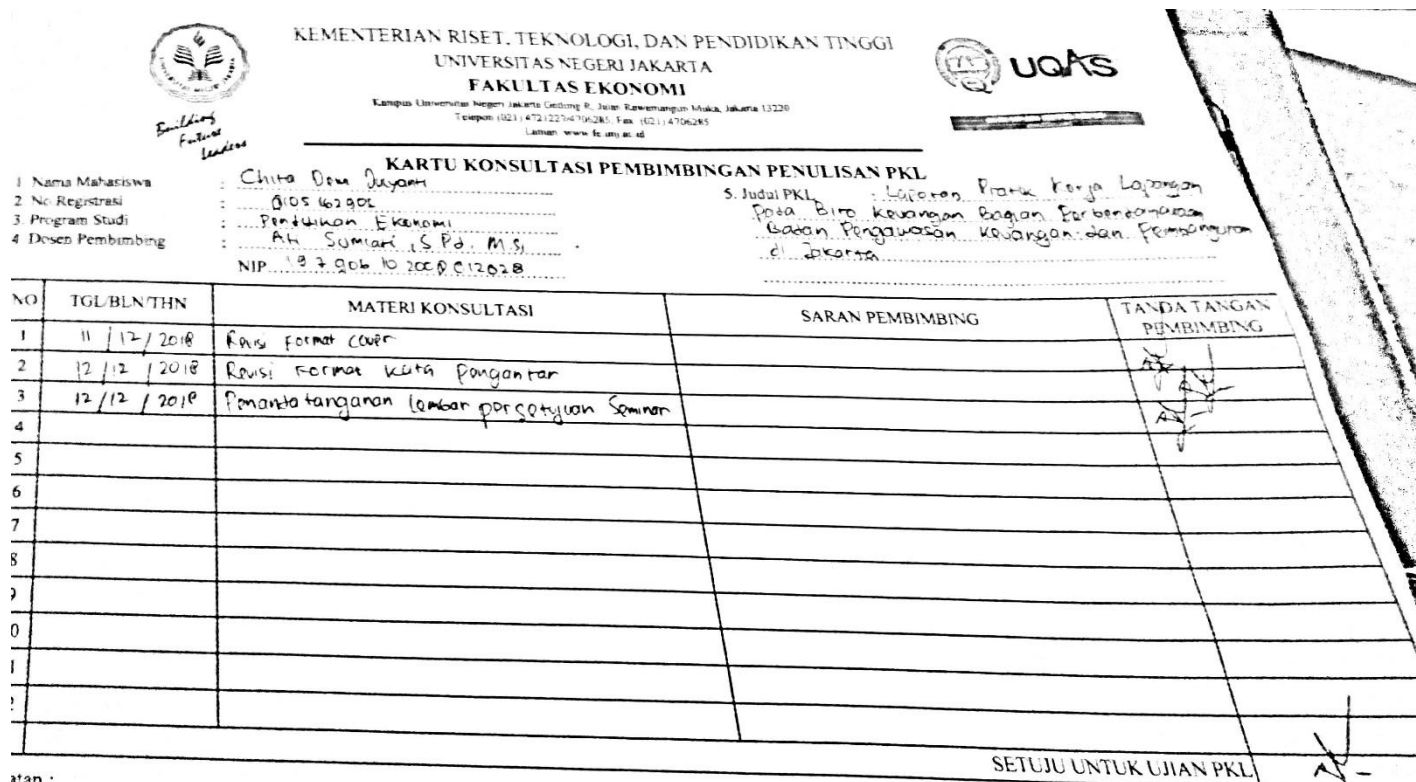 KEMENTERIAN RISET, TEKNOLOGI, DAN PENDIDIKAN TINGGI
UNIVERSITAS NEGERI JAKARTA
FAKULTAS EKONOMI
Kampus Universitas Negeri Jakarta Gedung R, Jalan Rawamangun Muka, Jakarta 13220
Telepon (021) 4721227/4706285, Fax. (021) 4706285
Laman www.fe.unj.ac.id
Building
Future
Leaders
UQAS
KARTU KONSULTASI PEMBIMBINGAN PENULISAN PKL
1 Nama Mahasiswa : Chita Dewi
2 No. Registrasi :
3. Program Studi : Pendidikan Ekonomi
4 Dosen Pembimbing : Ati Sumiati, S.Pd. M.Si
NIP
5. Judul PKL : Laporan Praktik Kerja Lapangan
Pada Biro Keuangan Bagian Perbendaharaan
Badan Pengawasan Keuangan dan Pembangunan
di Jakarta
NO TGL/BLN/THN MATERI KONSULTASI SARAN PEMBIMBING TANDA TANGAN PEMBIMBING
1 11 / 12 / 2018 Revisi Format Cover
2 12 / 12 / 2018 Revisi Format Kata Pengantar
3 12 / 12 / 2018 Penandatanganan lembar persetujuan Seminar
4
5
6
7
8
SETUJU UNTUK UJIAN PKL